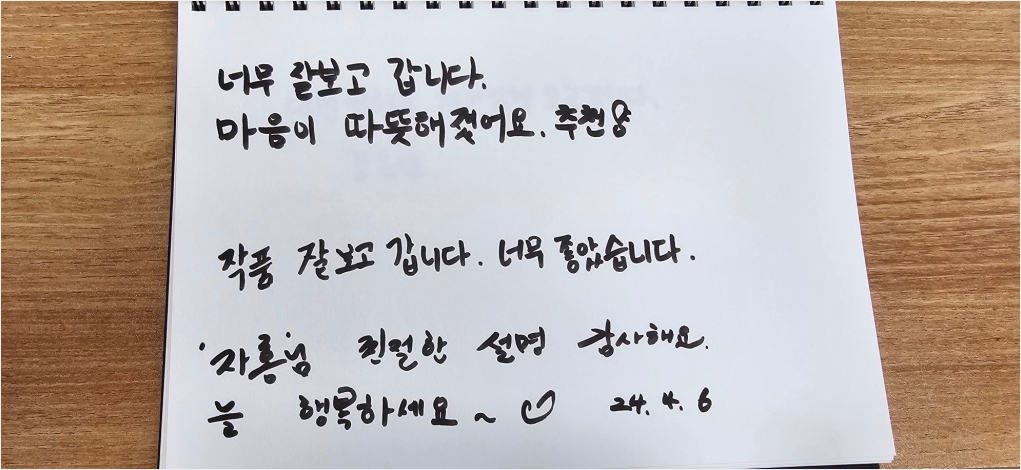 너무 잘보고 갑니다.
마음이 따뜻해졌어요. 추천양
작품 잘보고 갑니다. 너무 좋았습니다.
친절한 설명 감사해요.
늘 행복하세요~ 24. 4. 6